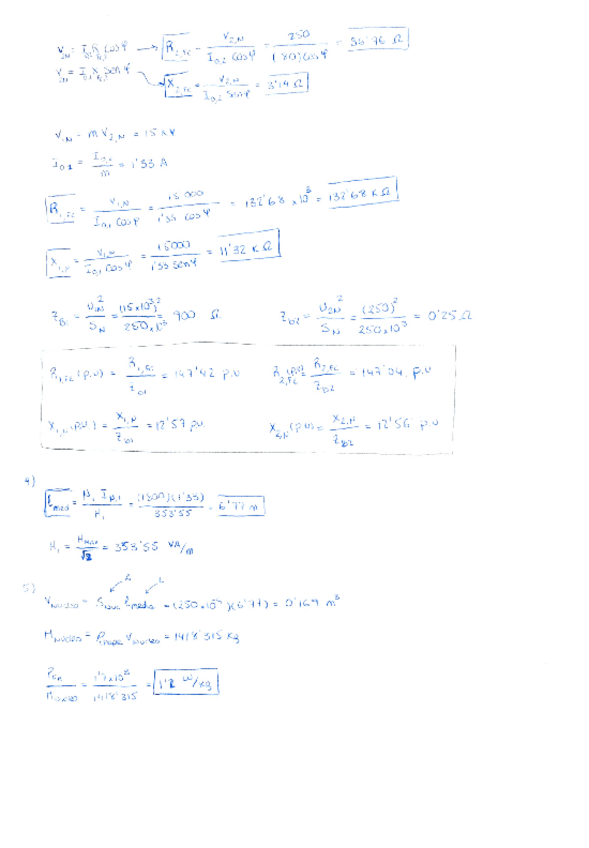 V1N = I0,2 R cos φ → R2,Fc = V2,N / (I0,2 cos φ) = 250 / ((80) cos φ) = 36'76 Ω
V1N = I0,1 X sen φ → X2,Fc = V2,N / (I0,2 sen φ) = 3'14 Ω
V1N = m V2,N = 15 kV
I0,1 = I0,2 / m = 1'33 A
R1,Fc = V1,N / (I0,1 cos φ) = 15000 / (1'33 cos φ) = 132'68 x10³ = 132'68 kΩ
X1,μ = V1,N / (I0,1 cos φ) = 15000 / (1'33 sen φ) = 11'32 kΩ
ZB1 = U1N² / SN = (15x10³)² / 250x10³ = 900 Ω
ZB2 = U2N² / SN = (250)² / 250x10³ = 0'25 Ω
R1,Fc (p.u) = R1,Fc / ZB1 = 147'42 p.u
R2,Fc (p.u) = R2,Fc / ZB2 = 147'04 p.u
X1,μ (p.u) = X1,μ / ZB1 = 12'57 p.u.
X2,μ (p.u) = X2,μ / ZB2 = 12'56 p.u
4)
lmed = N1 I0,1 / H1 = (1800)(1'33) / 353'55 = 6'77 m
H1 = Hmax / √2 = 353'55 VA/m
5)
A L
Vnúcleo = Snuc lmedia = (250x10⁻⁴)(6'77) = 0'169 m³
Mnúcleo = ρchapa Vnúcleo = 1418'315 kg
Pcn / Mnúcleo = 1'7x10³ / 1418'315 = 1'2 W/kg